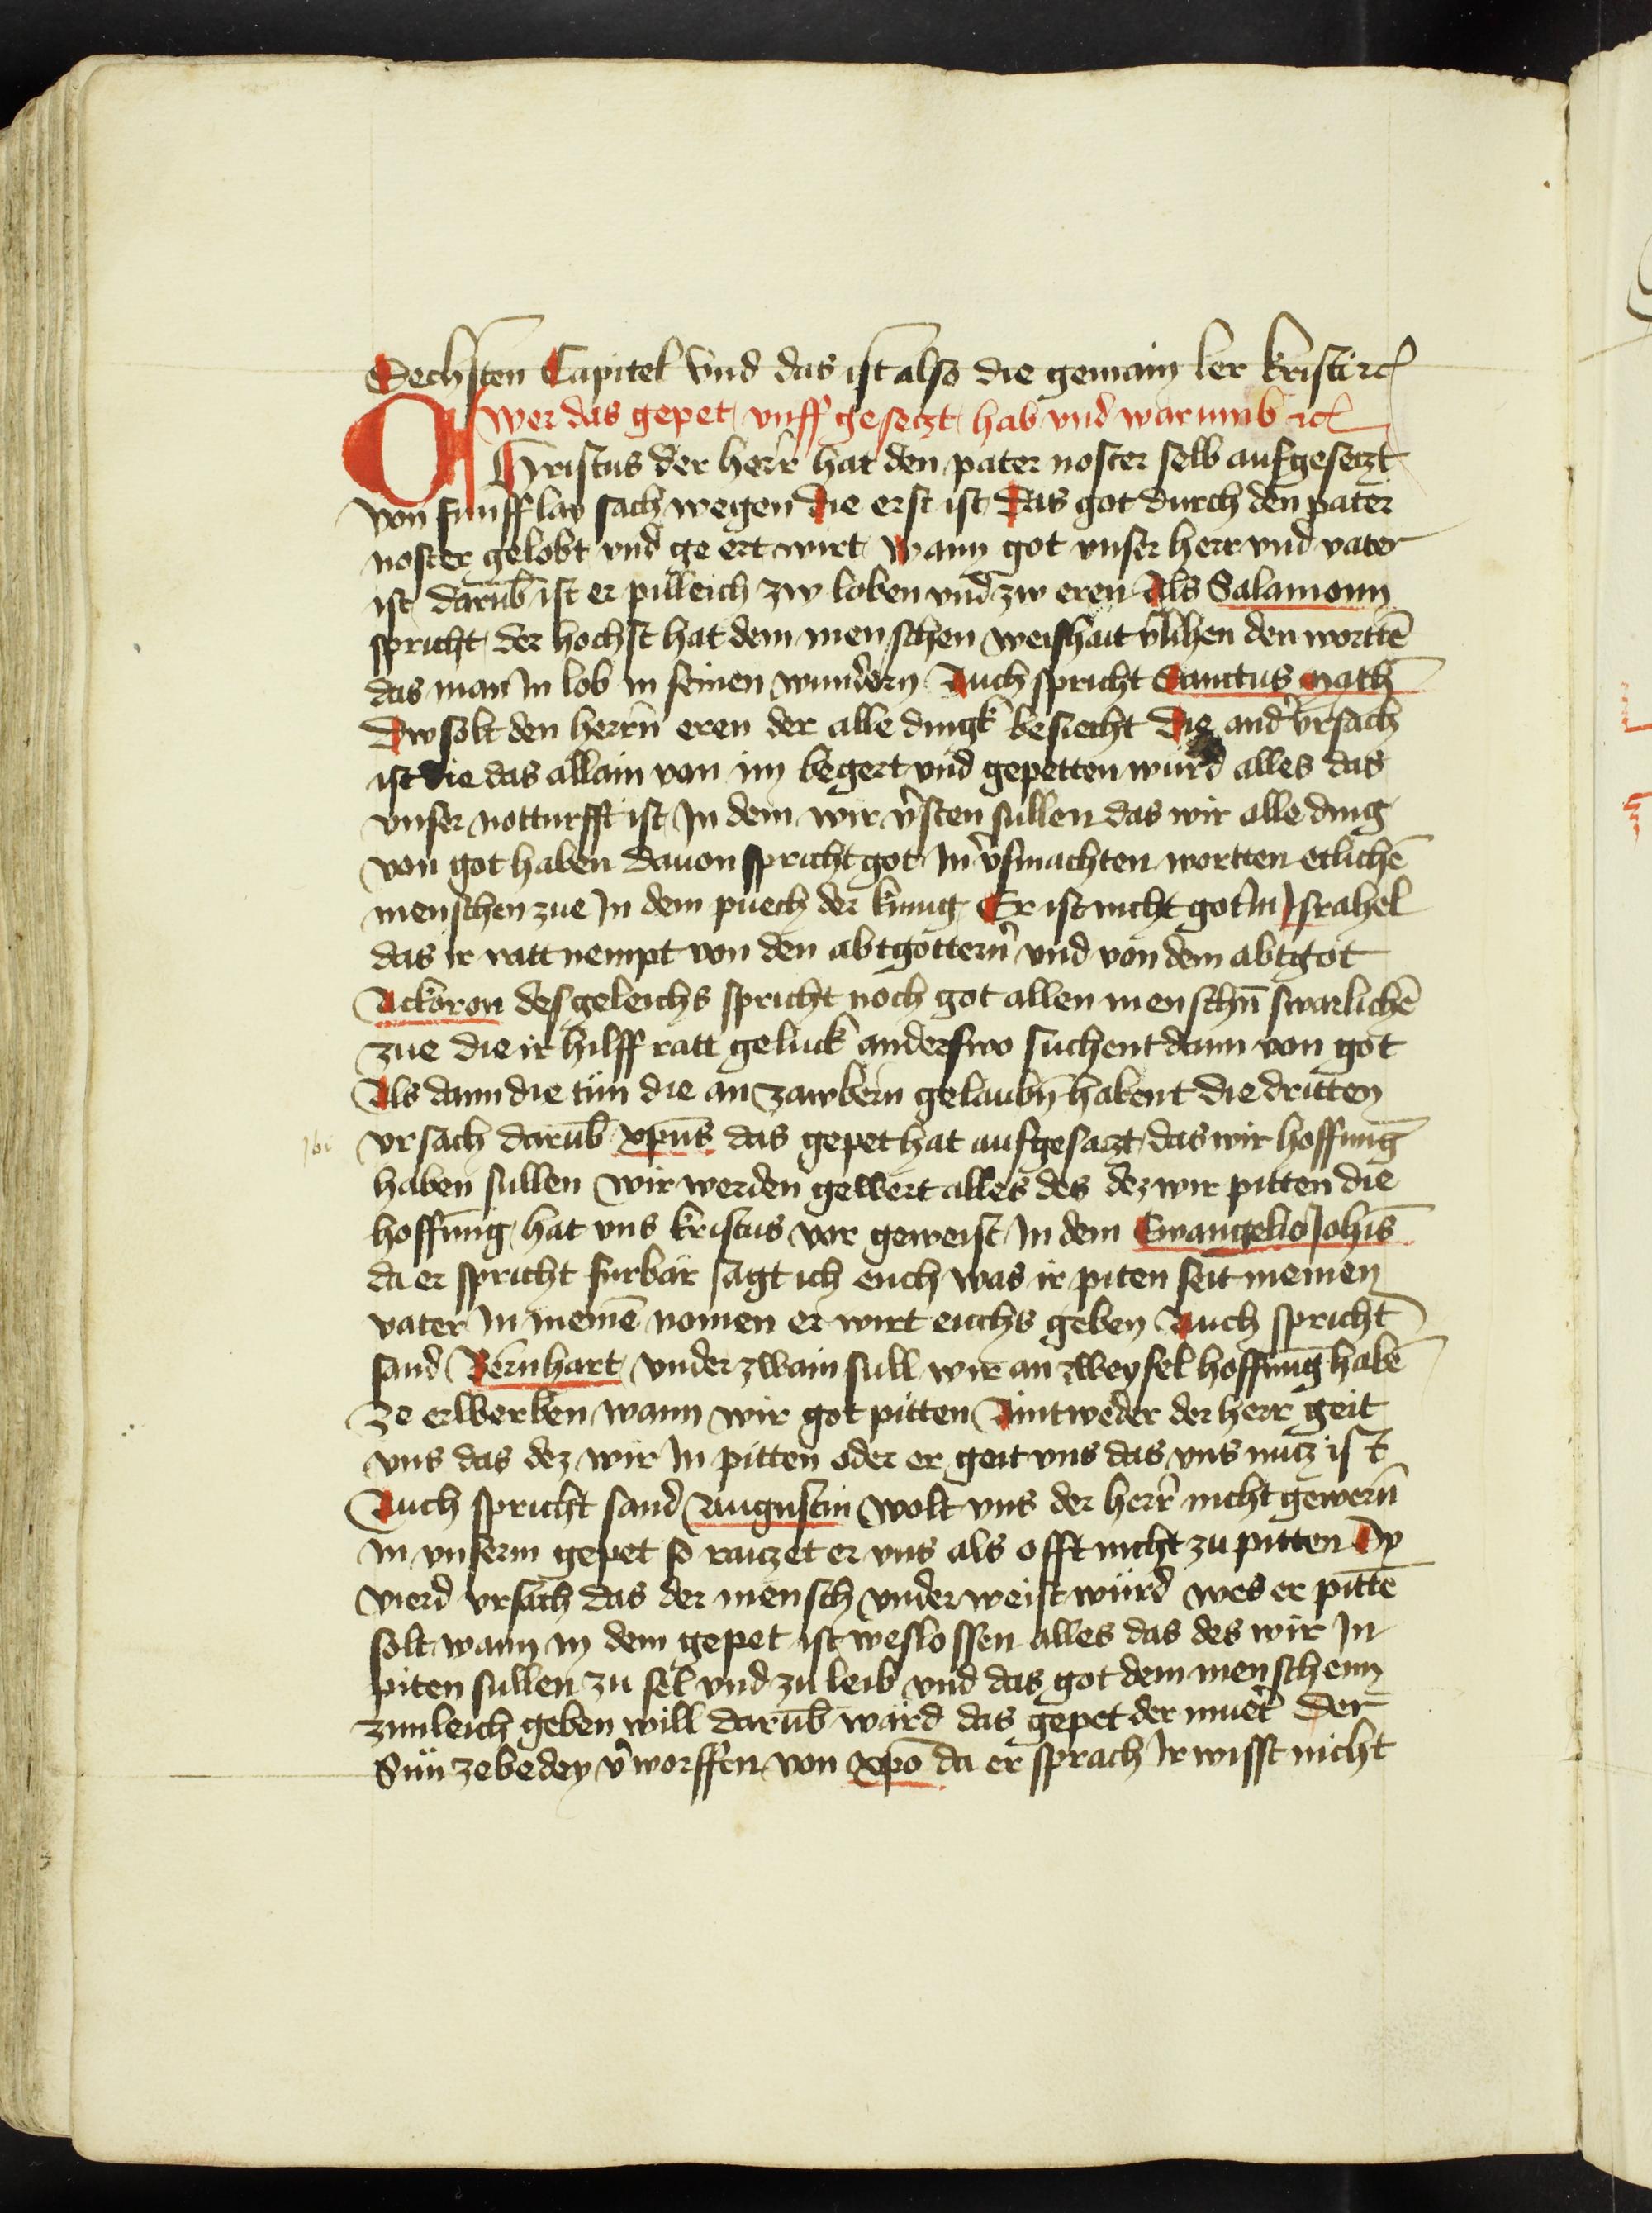 Sechsten Capitel Vnd das ist also die gemain ler kristi rc
wer das gepet vnff gesetzt hab vnd warumb rc
Christus der herr hat den pater noster selb aufgesetzt
von funfflay sach wegen die erst ist das got durch den pater
noster gelobt vnd ge ert wirt wann got vnser herr vnd vater
ist darūb ist er pilleich zw loben vnd zw eren Als Salamonn
spricht der hochst hat dem menschen weishait v̄lihen den worttē
das man In lob in seinen wundern Auch spricht Sanctus Math
Dw solt den herrn̄ eren der alle dingk besiecht Die and̄ vrsach
ist die das allain von im begert vnd gepetten wurd alles das
vnser notturfft ist In dem wir v̄sten sullen das wir alle ding
von got haben dauon spricht got In v̄smachten wortten etlichē
menschen zue In dem puech der kunig Er ist nicht got In Israhel
das ir ratt nempt von den abtgottern̄ vnd von dem abtgot
Ackoron desgeleichs spricht noch got allen menschn̄ swarlichē
zue die ir hilff ratt geluck anderswo suchent dann von got
Als dann die tün die an zawbern gelaubn̄ habent die dritten
vrsach darūb xp̄us das gepet hat aufgesatzt das wir hoffunḡ
haben sullen wir werden gewert alles des dez wir pitten die
hoffnung hat vns kristus vor geweist In dem Ewangelio Joh̄is
da er spricht furbär sagt ich euch was ir piten seit meinen
vater In meinē nomen er wirt euchs geben Auch spricht
sand Bernhart vnder zwain sull wir an zweyfel hoffunḡ habē
ze erwerben wann wir got pitten Aintweder der herr geit
vns das dez wir In pitten oder er geit vns das vns nutz ist
Auch spricht sand Augustin wolt vns der herr nicht gewern̄
In vnserm gepet so raiczet er vns als offt nicht zu pitten Dy
vierd vrsach das der mensch vnderweist würd wes er pittē
solt wann in dem gepet ist weslossen alles das des wir In
piten sullen zu sel vnd zu leib vnd das got dem menschenn
zimleich geben will darūb ward das gepet der muet̄ der
Sün zebedey v̄worffen von xp̄o da er sprach Ir wisst nicht